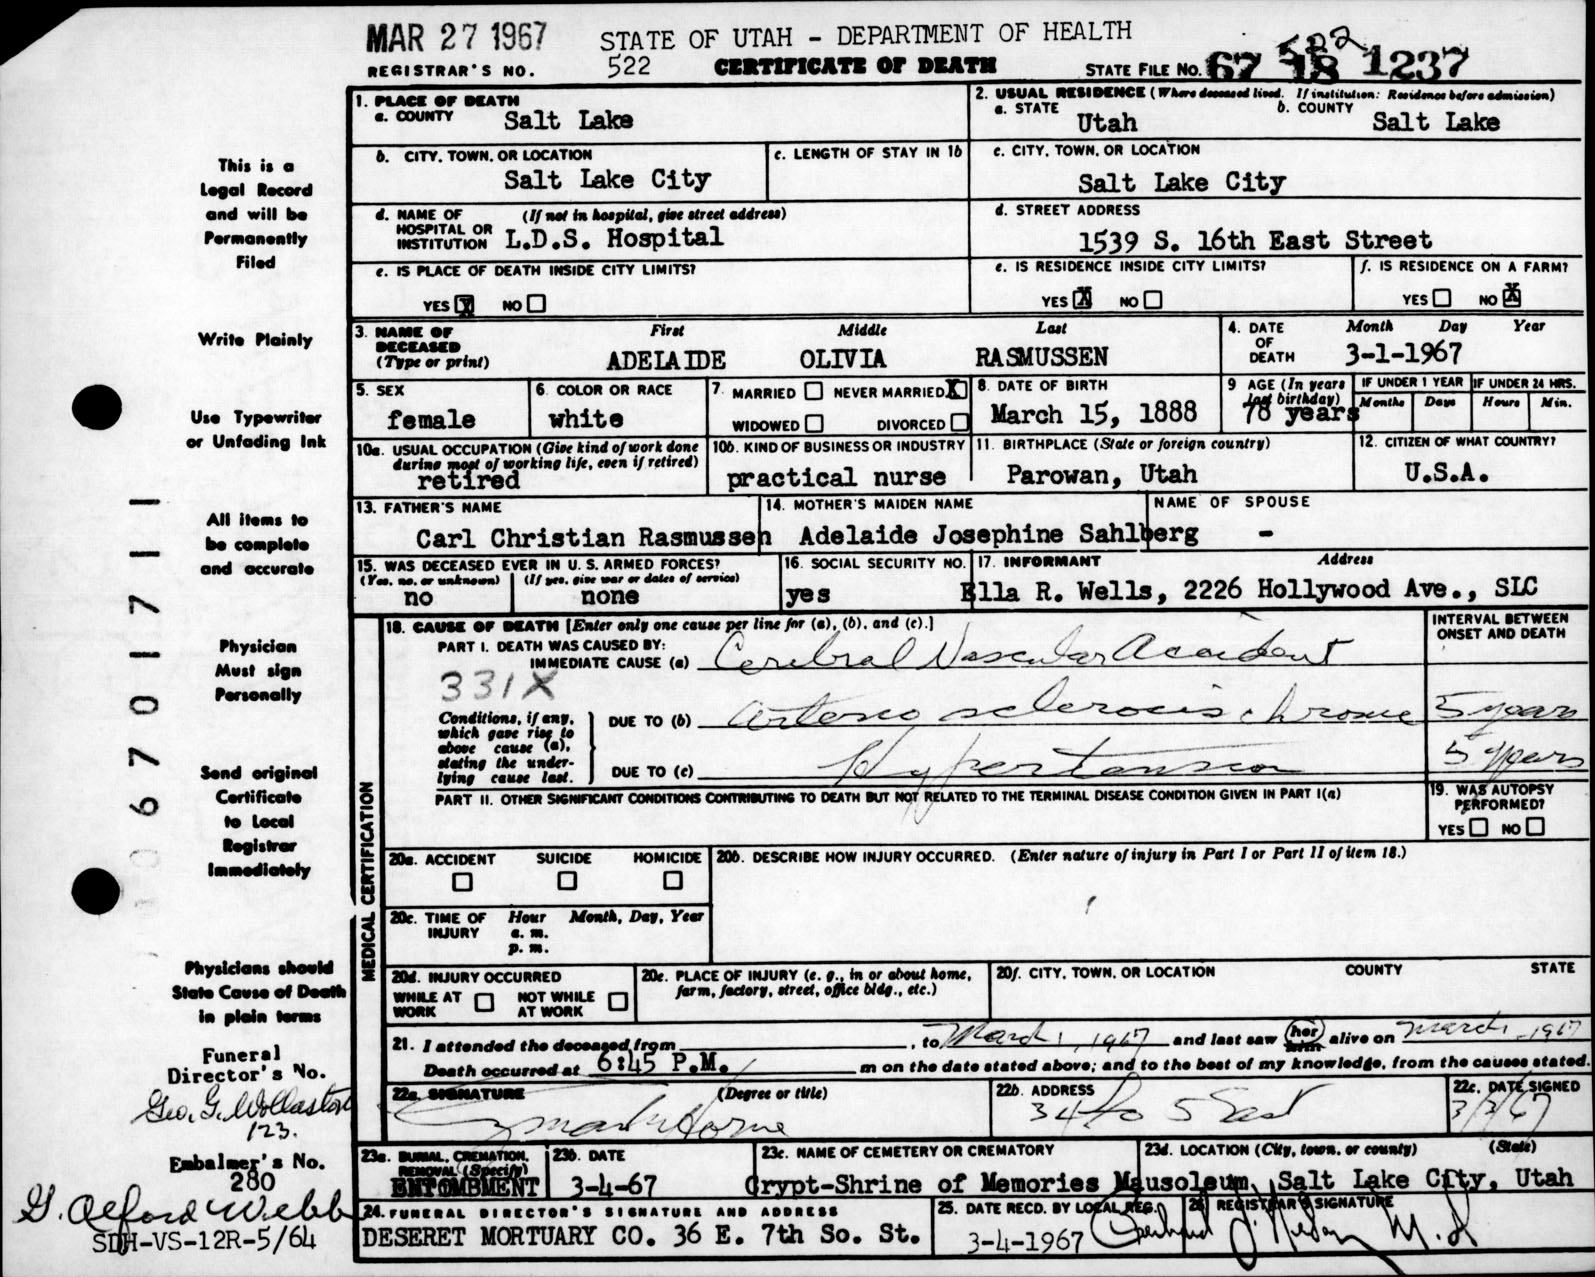 MAR 27 1967
STATE OF UTAH - DEPARTMENT OF HEALTH
REGISTRAR'S NO. 522 CERTIFICATE OF DEATH STATE FILE NO. 67 18 1237
522
1. PLACE OF DEATH
a. COUNTY Salt Lake
2. USUAL RESIDENCE (Where deceased lived. If institution: Residence before admission)
a. STATE Utah b. COUNTY Salt Lake
b. CITY, TOWN, OR LOCATION Salt Lake City
c. LENGTH OF STAY IN 1b
c. CITY, TOWN, OR LOCATION Salt Lake City
d. NAME OF HOSPITAL OR INSTITUTION (If not in hospital, give street address) L.D.S. Hospital
d. STREET ADDRESS 1539 S. 16th East Street
e. IS PLACE OF DEATH INSIDE CITY LIMITS?
YES X NO
e. IS RESIDENCE INSIDE CITY LIMITS?
YES X NO
f. IS RESIDENCE ON A FARM?
YES NO X
3. NAME OF DECEASED (Type or print)
First Middle Last
ADELAIDE OLIVIA RASMUSSEN
4. DATE OF DEATH Month Day Year
3-1-1967
5. SEX female
6. COLOR OR RACE white
7. MARRIED NEVER MARRIED X
WIDOWED DIVORCED
8. DATE OF BIRTH March 15, 1888
9 AGE (In years last birthday) 78 years
IF UNDER 1 YEAR Months Days
IF UNDER 24 HRS. Hours Min.
10a. USUAL OCCUPATION (Give kind of work done during most of working life, even if retired) retired
10b. KIND OF BUSINESS OR INDUSTRY practical nurse
11. BIRTHPLACE (State or foreign country) Parowan, Utah
12. CITIZEN OF WHAT COUNTRY? U.S.A.
13. FATHER'S NAME Carl Christian Rasmussen
14. MOTHER'S MAIDEN NAME Adelaide Josephine Sahlberg
NAME OF SPOUSE -
15. WAS DECEASED EVER IN U. S. ARMED FORCES?
(Yes, no, or unknown) (If yes, give war or dates of service)
no none
16. SOCIAL SECURITY NO. yes
17. INFORMANT Address
Ella R. Wells, 2226 Hollywood Ave., SLC
MEDICAL CERTIFICATION
18. CAUSE OF DEATH [Enter only one cause per line for (a), (b), and (c).]
INTERVAL BETWEEN ONSET AND DEATH
PART I. DEATH WAS CAUSED BY:
IMMEDIATE CAUSE (a) Cerebral Vascular Accident
331X
Conditions, if any, which gave rise to above cause (a), stating the underlying cause last.
DUE TO (b) Arterio sclerosis chronic 5 years
DUE TO (c) Hypertension 5 years
PART II. OTHER SIGNIFICANT CONDITIONS CONTRIBUTING TO DEATH BUT NOT RELATED TO THE TERMINAL DISEASE CONDITION GIVEN IN PART I(a)
19. WAS AUTOPSY PERFORMED?
YES NO
20a. ACCIDENT SUICIDE HOMICIDE
20b. DESCRIBE HOW INJURY OCCURRED. (Enter nature of injury in Part I or Part II of item 18.)
20c. TIME OF INJURY Hour Month, Day, Year
a. m.
p. m.
20d. INJURY OCCURRED
WHILE AT WORK NOT WHILE AT WORK
20e. PLACE OF INJURY (e. g., in or about home, farm, factory, street, office bldg., etc.)
20f. CITY, TOWN, OR LOCATION COUNTY STATE
21. I attended the deceased from , to March 1, 1967 and last saw her alive on March 1, 1967
Death occurred at 6:45 P.M. m on the date stated above; and to the best of my knowledge, from the causes stated.
22a. SIGNATURE (Degree or title)
22b. ADDRESS 
22c. DATE SIGNED 3/3/67
23a. BURIAL, CREMATION, REMOVAL (Specify) ENTOMBMENT
23b. DATE 3-4-67
23c. NAME OF CEMETERY OR CREMATORY Crypt-Shrine of Memories Mausoleum,
23d. LOCATION (City, town, or county) (State) Salt Lake City, Utah
24. FUNERAL DIRECTOR'S SIGNATURE AND ADDRESS
DESERET MORTUARY CO. 36 E. 7th So. St.
25. DATE RECD. BY LOCAL REG. 3-4-1967
26. REGISTRAR'S SIGNATURE
This is a
Legal Record
and will be
Permanently
Filed
Write Plainly
Use Typewriter
or Unfading Ink
All items to
be complete
and accurate
Physician
Must sign
Personally
Send original
Certificate
to Local
Registrar
Immediately
Physicians should
State Cause of Death
in plain terms
Funeral
Director's No.
Geo. G. Wollaston
123.
Embalmer's No.
280
G. Alford Webb
SDH-VS-12R-5/64